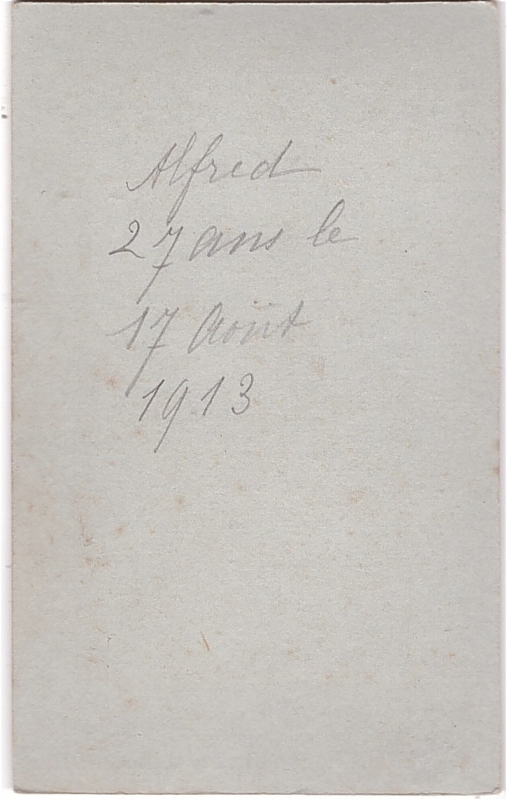 Alfred
27 ans le
17 Août
1913